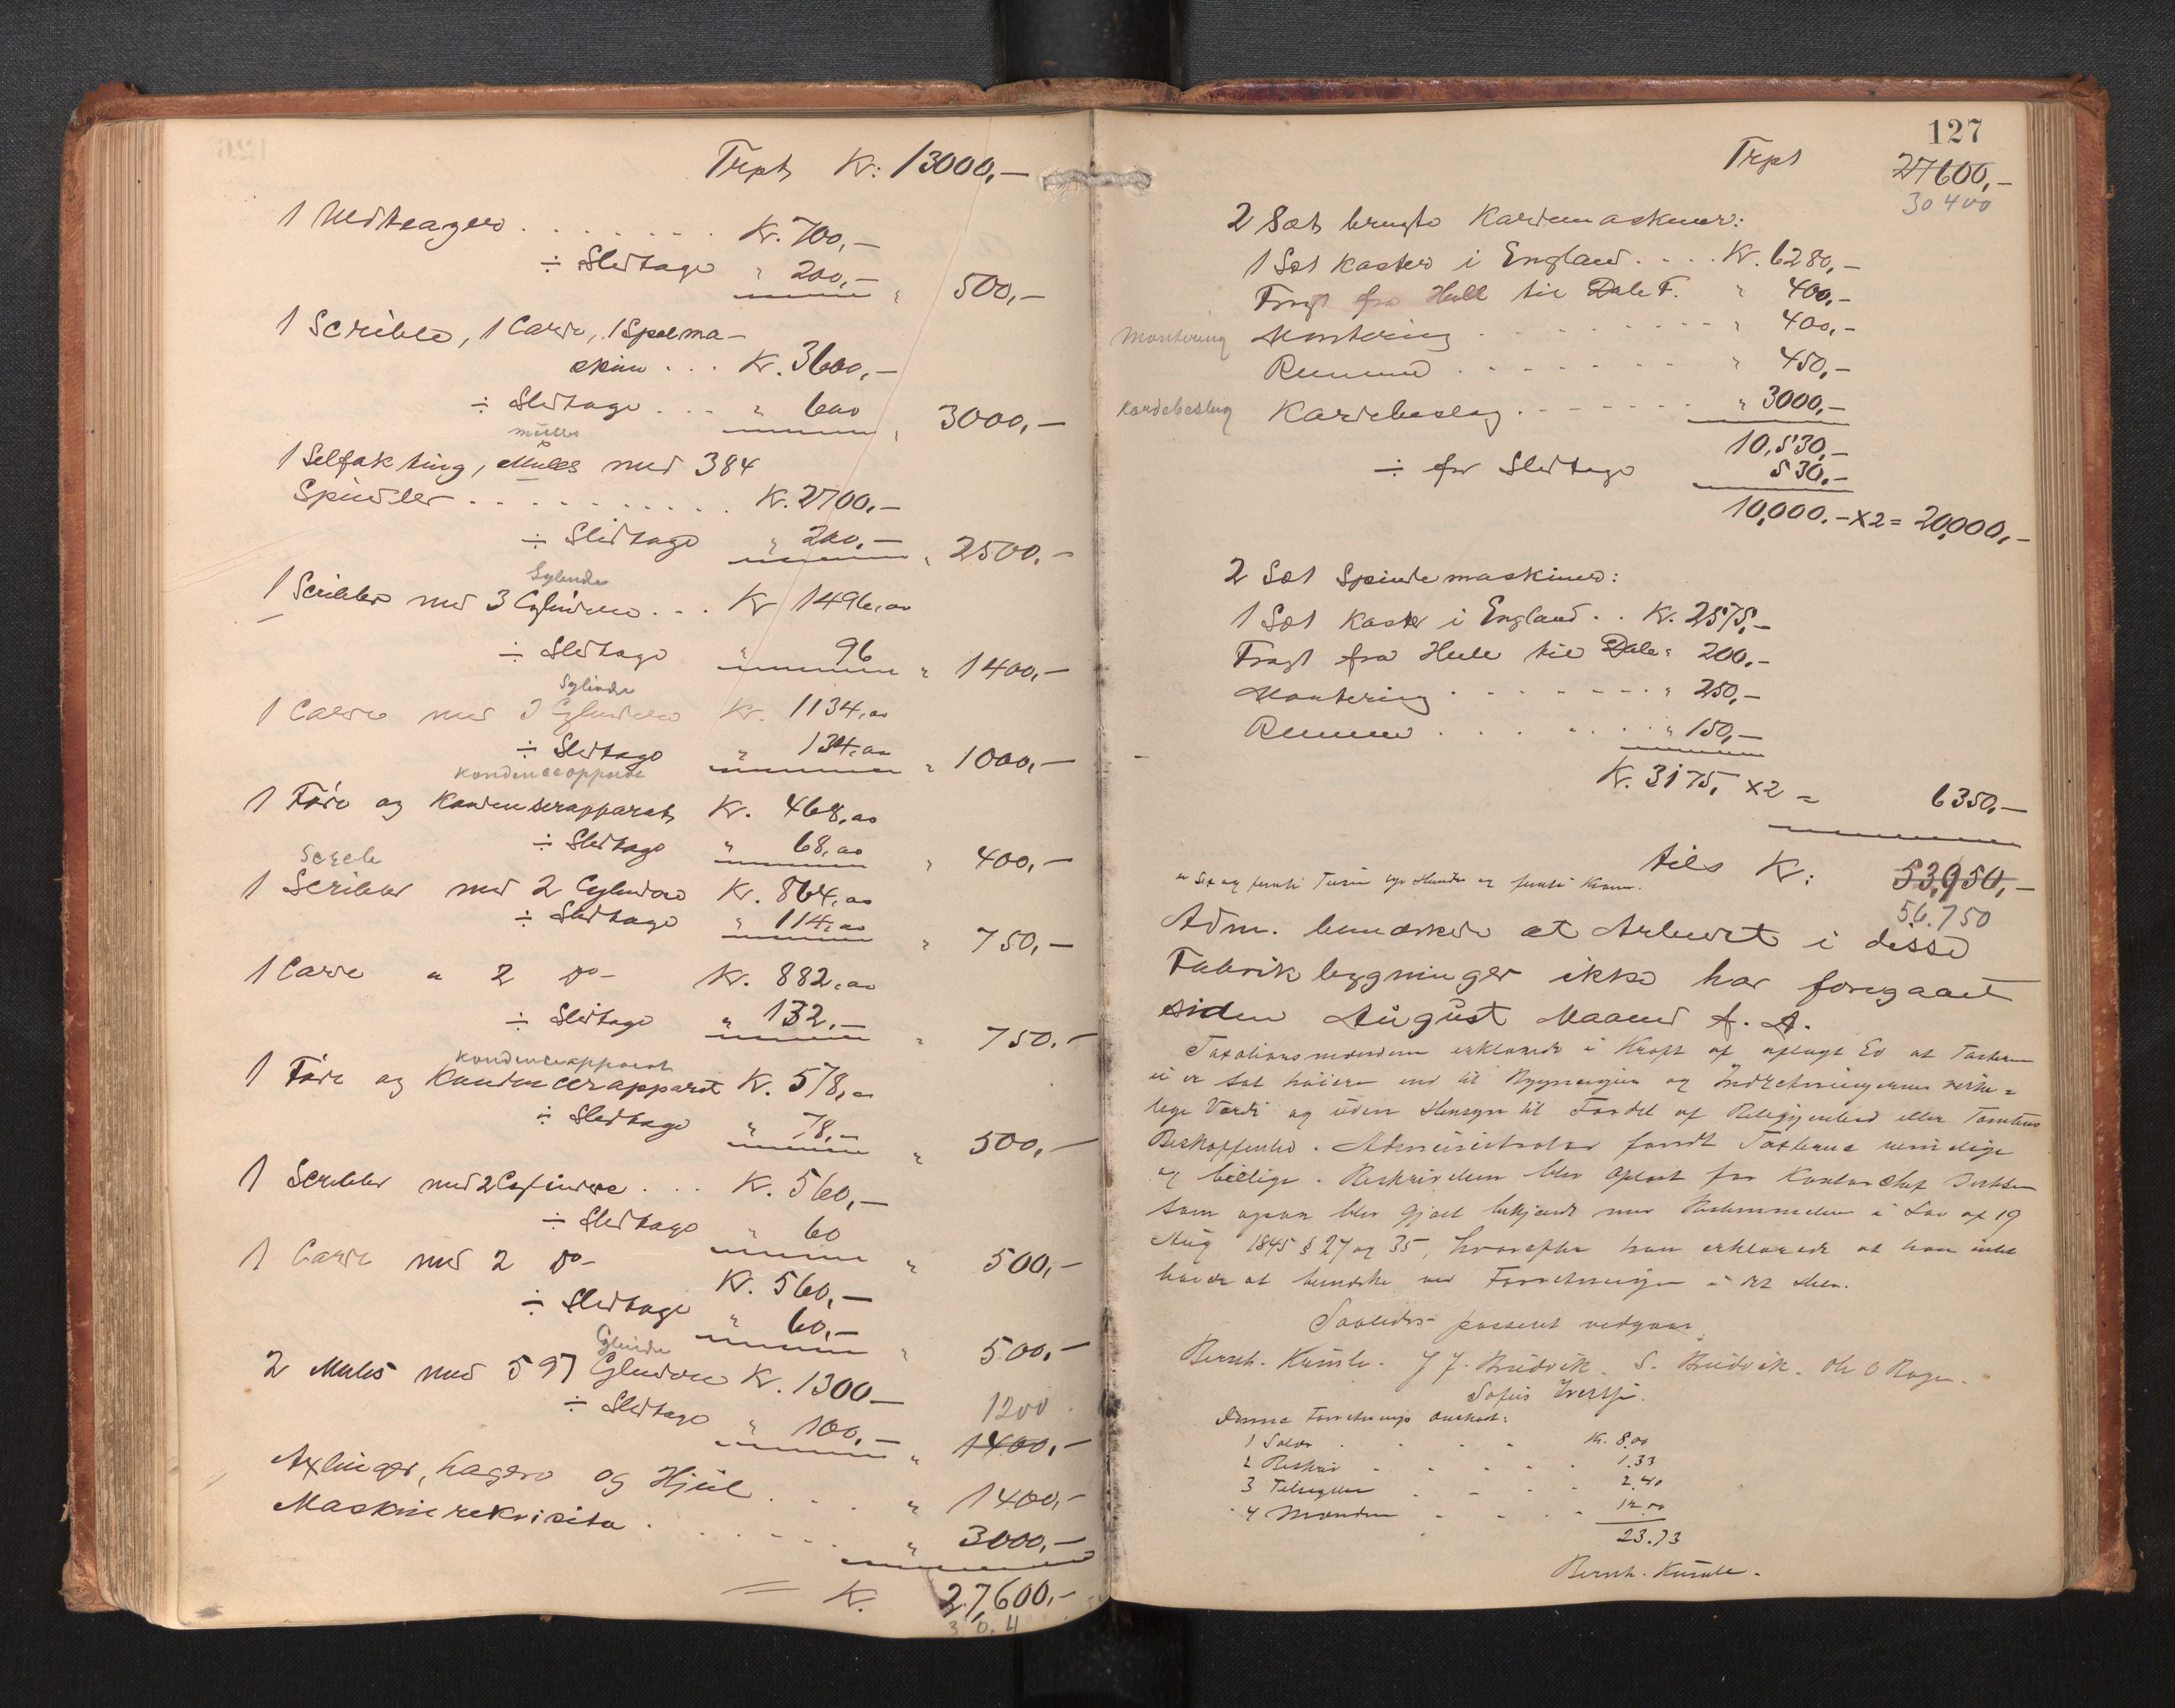 Trpt Kr: 13000,-
1 Nedtrager . . . . . . . Kr. 700,-
÷ Slitage " 200,- " 500,-
1 Scribler, 1 Carde, 1 Spolma-
skin . . . Kr. 3600,-
÷ Slitage . . . " 600 " 3000,-
mules
1 Selfakting, Mules med 384
Spindler . . . . . . . . . . Kr. 2700,-
÷ Slitage " 200,- " 2500,-
Cylinder
1 Scribler med 3 Cylindere . . . Kr 1496,00
÷ Slitage " 96 " 1400,-
Cylinder
1 Carde med 3 Cylindere Kr. 1134,00
÷ Slitage " 134,00 " 1000,-
Kondenseapparat
1 Føde og Kondenserapparat Kr. 468,00
÷ Slitage " 68,00 " 400,-
1 Scribler med 2 Cylindere Kr. 864,00
÷ Slitage " 114,00 " 750,-
1 Carde " 2 do- Kr. 882,00
÷ Slitage " 132,- " 750,-
Kondenseapparat
1 Føde og Kondenserapparat Kr. 578,00
÷ Slitage " 78,- " 500,-
1 Scribler med 2 Cylindere . . . Kr. 560,-
÷ Slitage " 60 " 500,-
1 Carde med 2 do-
Kr. 560,-
÷ Slitage " 60,- " 500,-
Cylinder
2 Mules med 597 Cylindere Kr. 1300-
1200
÷ Slitage " 100,- " 1400,-
Axlinger, Lagere og Hjul . . . . " 1400,-
Maskinrekvisita . . . . . . " 3000,-
= Kr. 27,600,-
30,4
127
Trpt 27600,-
30 400
2 Sæt brugte Kardemaskiner:
1 Sæt koster i England . . . . Kr. 6280,-
Fragt fra Hull til Dale F. " 400,-
Montering Montering . . . . . . . . . " 400,-
Remme . . . . . . . " 450,-
Kardebeslag Kardebeslag . . . . . . . " 3000,-
10,530,-
÷ for Slitage 530,-
10,000.- x2 = 20,000,-
2 Sæt Spindemaskiner:
1 Sæt koster i England . . Kr. 2575,-
Fragt fra Hull til Dale " 200,-
Montering . . . . . . . " 250,-
Remme . . . . . . " 150,-
Kr. 3175, x2 = 6350,-
tils Kr: 53,950,-
56.750
Adm. bemærkede at Arbeidet i disse
Fabrikbygninger ikke har foregaaet
siden August Maaned f. A.
Taxationsmændene erklærede i Kraft af aflagt Ed at Taxterne
ei er sat høiere end til Bygningens og Indretningernes virke=
lige Værdi og uden Hensyn til Fordel af Beliggenhed eller Tomtens
Beskaffenhed. Administrator fandt Taxterne rimelige
og billige. Beskrivelsen blev oplæst for Kontorchef
som ogsaa blev gjort bekjendt med Bestemmelsen i Lov af 19
Aug 1845 § 27 og 35, hvorefter han erklærede at han intet
havde at bemærke ved Forretningen i det Hele.
Saaledes passeret vedgaar
Bernh. J J. Bridvik. S. Bridvik. Ole O
Denne Forretnings Omkost:
1 Salær . . . . Kr. 8.00
2 Beskriv . . . . 1.33
3 . . . . 2.40
4 Mændene . . . . 12.00
23.73
Bernh.